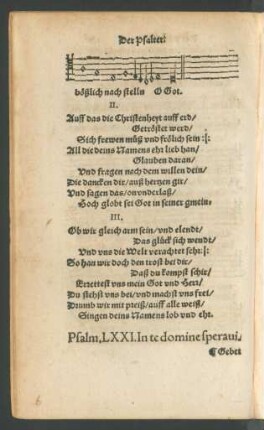 Der Psalter.
bößlich nach stelln O Got.
II.
Auff das die Christenheyt auff erd/
Getröstet werd/
Sich frewen müß vnd frölich sein :|:
All die deins Namens ehr lieb han/
Glauben daran/
Vnd fragen nach dem willen dein/
Die dancken dir/ auß hertzen gir/
Vnd sagen das/ on vnderlaß/
Hoch globt sei Got in seiner gmein.
III.
Ob wir gleich arm sein/ vnd elendt/
Das glück sich wendt/
Vnd vns die Welt verachtet sehr :|:
So han wir doch den trost bei dir/
Daß du kompst schir/
Errettest vns mein Got vnd Herr/
Du stehst vns bei/ vnd machst vns frei/
Drumb wir mit preiß/ auff alle weiß/
Singen deins Namens lob vnd eht.
Psalm, LXXI. In te domine speraui.
¶ Gebet